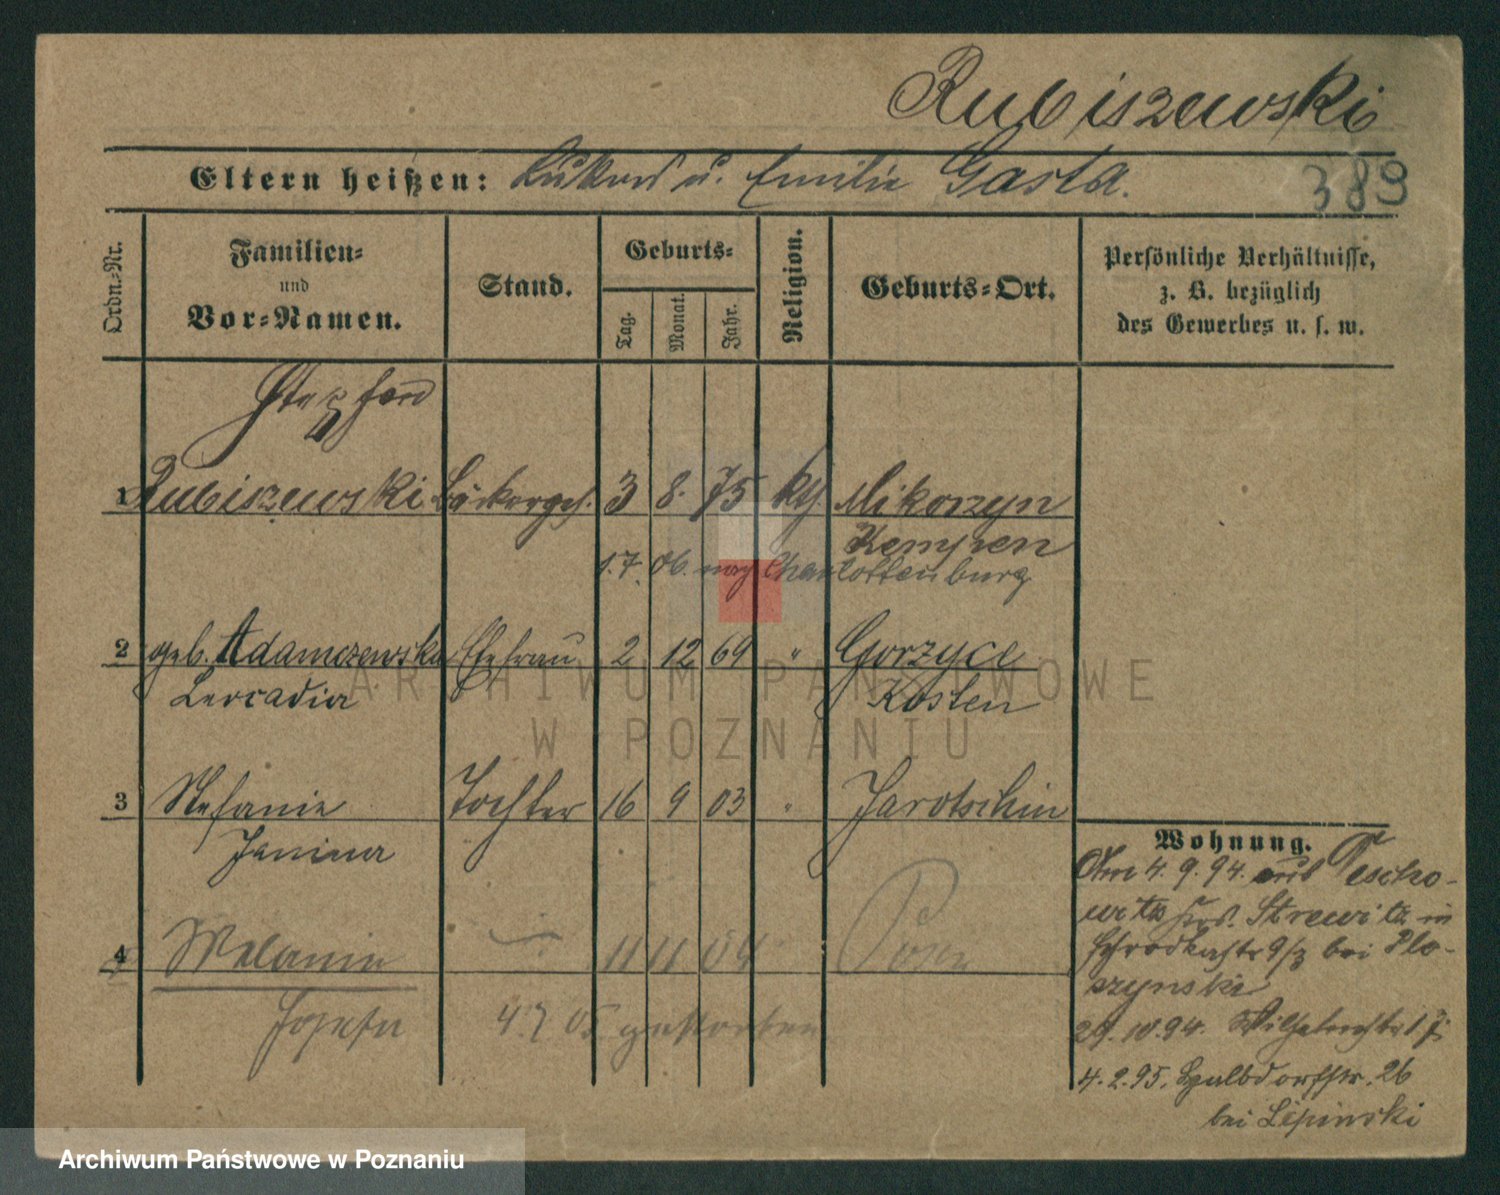 Rubiszewski
Eltern heißen: Lukas u. Emilie Gasta.
383
Ordn.-Nr.
Familien-
und
Vor-Namen.
Stand.
Geburts-
Tag.
Monat.
Jahr.
Religion.
Geburts-Ort.
Persönliche Verhältnisse,
z. B. bezüglich
des Gewerbes u. s. w.
Stephan
1 Rubiszewski Bäckerges. 3 8. 75 kth. Mikorzyn
Kempen
1.7. 06. nach Charlottenburg
2 geb. Adamczewska Ehefrau 2 12 69 " Gorzyce
Leocadia Kosten
3 Stefanie Tochter 16 9 03 " Jarotschin
Janina
4 Melanie 11 11 04 Posen
Josefa 4.7 05 gestorben
Wohnung.
4. 9. 94. aus
Strewitz in
9/3 bei Plo-
szynski
29. 10. 94.
4. 2. 95. Halbdorfstr. 26
bei Lipinski
ARCHIWUM PAŃSTWOWE
W POZNANIU
Archiwum Państwowe w Poznaniu